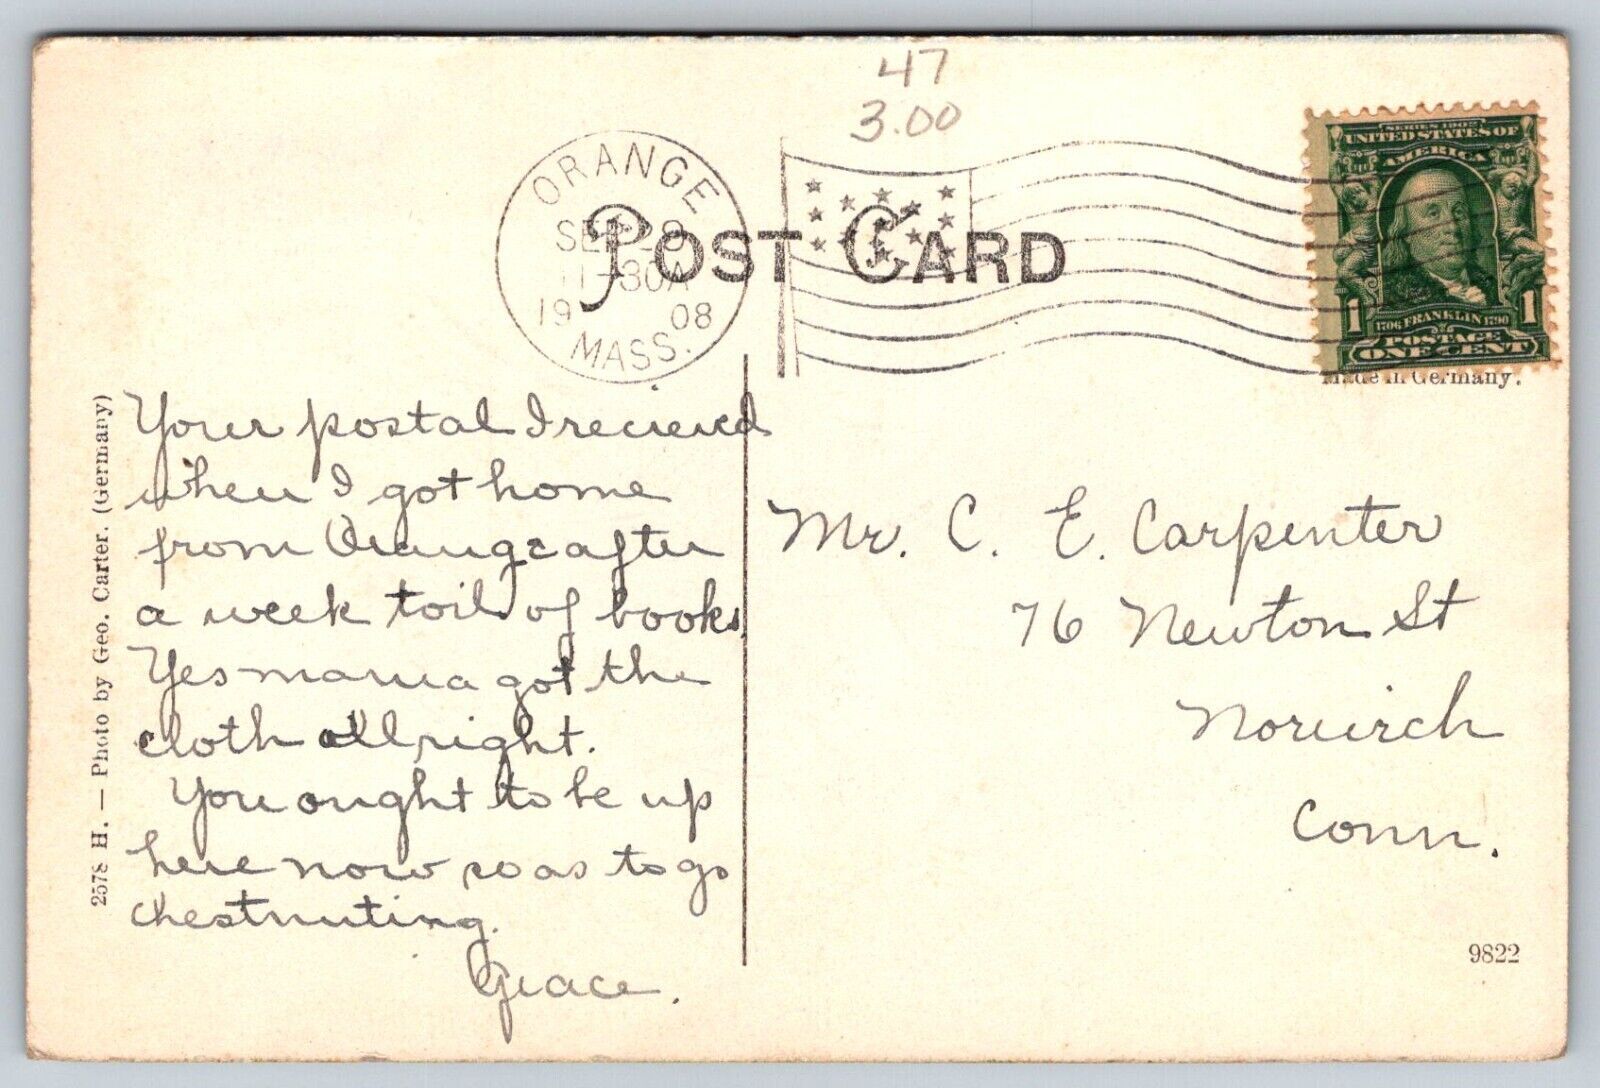 47
3.00
ORANGE
SEP 28
11-30A
19 08
MASS.
POST CARD
SERIES 1902
UNITED STATES OF
AMERICA
1 1
1706 FRANKLIN 1790
POSTAGE
ONE CENT
Made in Germany.
2578 H. — Photo by Geo. Carter. (Germany)
Your postal I recieved
when I got home
from Orange after
a week toil of books.
Yes mama got the
cloth allright.
You ought to be up
here now so as to go
chestnuting.
Grace.
Mr. C. E. Carpenter
76 Newton St
Norwich
Conn.
9822